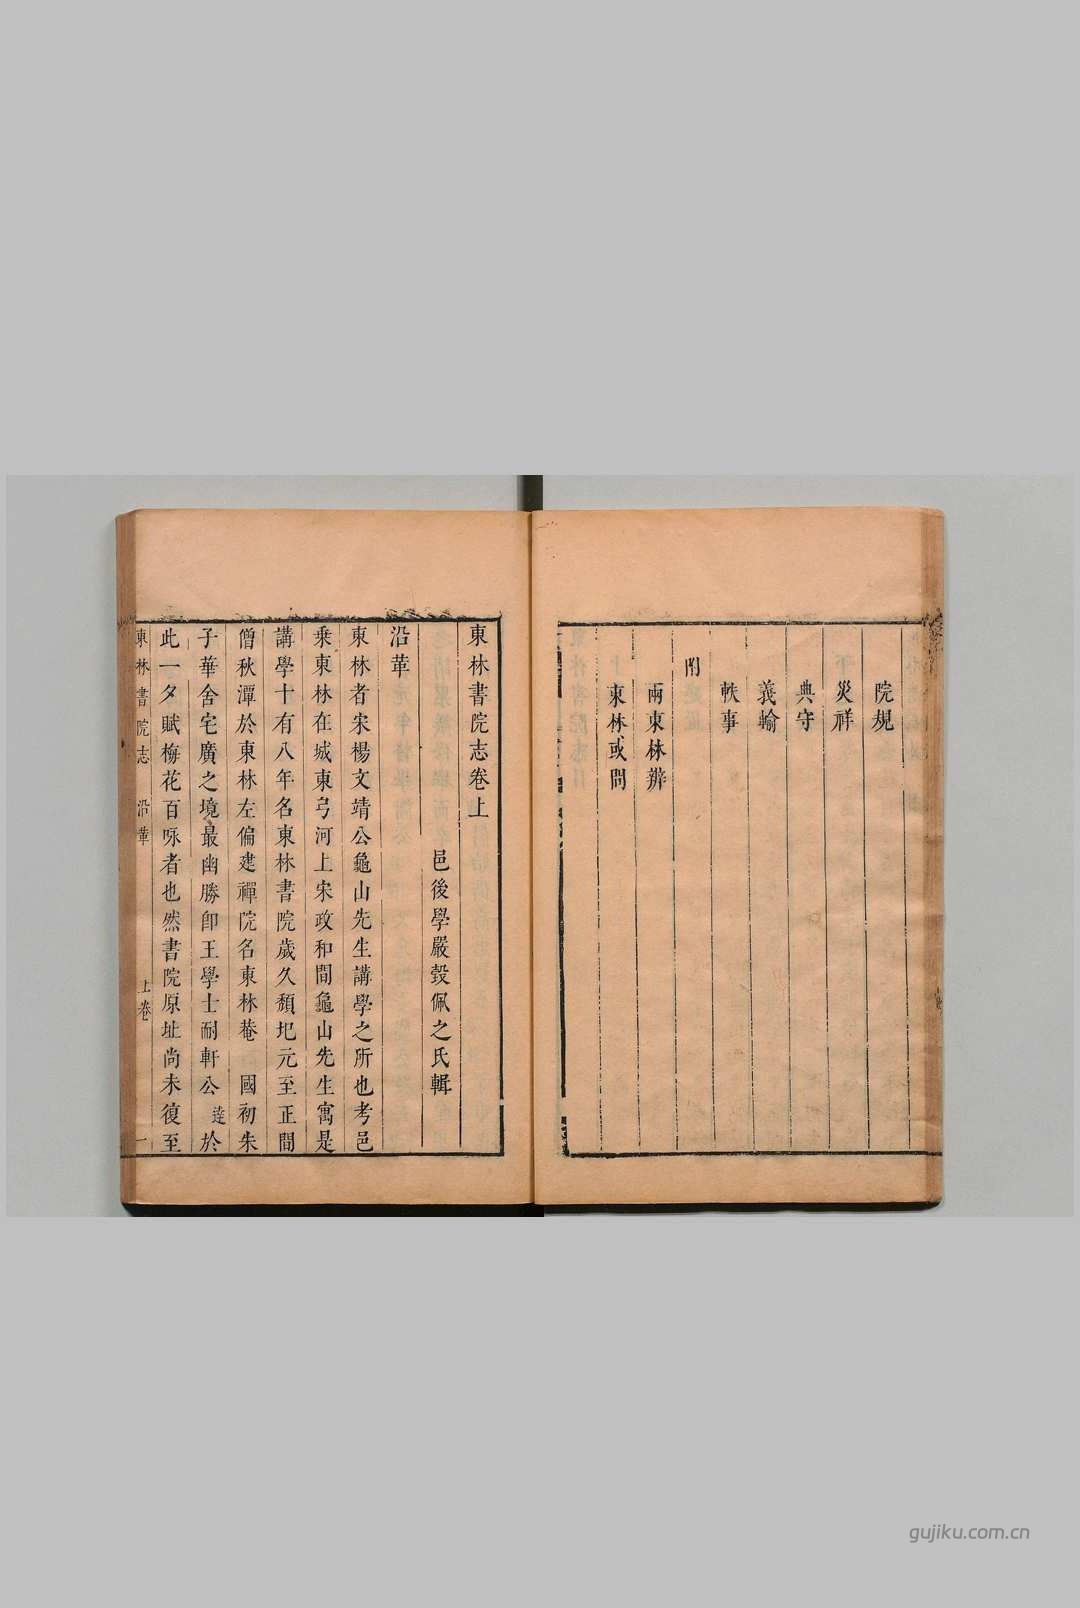 院規
災祥
典守
義輸
軼事
附
兩東林辨
東林或問
東林書院志卷上
邑後學嚴瑴佩之氏輯
沿革
東林者宋楊文靖公龜山先生講學之所也考邑
乗東林在城東弓河上宋政和間龜山先生寓是
講學十有八年名東林書院歲久頹圮元至正間
僧秋潭於東林左偏建禪院名東林菴 國初朱
子華舍宅廣之境最幽勝卽王學士耐軒公達於
此一夕賦梅花百咏者也然書院原址尚未復至
東林書院志 沿革 上卷 一
gujiku.com.cn